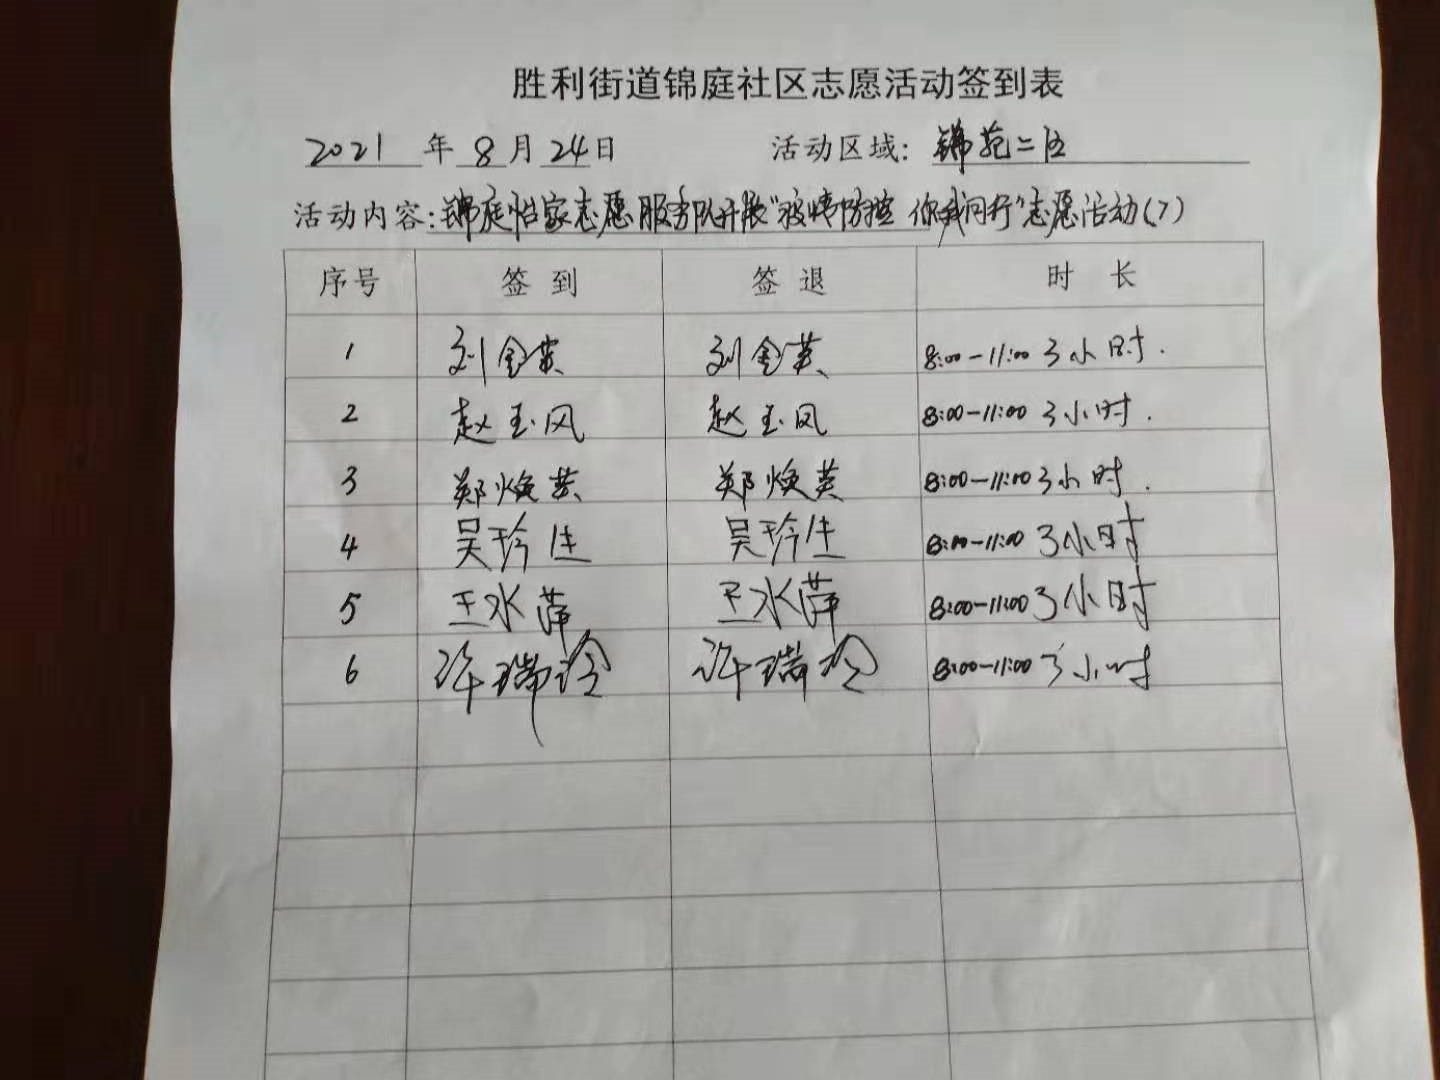 胜利街道锦庭社区志愿活动签到表
2021年8月24日 活动区域：锦苑二区
活动内容：锦庭怡家志愿服务队开展"疫情防控 你我同行"志愿活动(7)
序号 签到 签退 时长
1 刘金英 刘金英 8:00-11:00 3小时.
2 赵玉凤 赵玉凤 8:00-11:00 3小时.
3 郑焕英 郑焕英 8:00-11:00 3小时.
4 吴珍佳 吴珍佳 8:00-11:00 3小时
5 王水萍 王水萍 8:00-11:00 3小时
6 许瑞玲 许瑞玲 8:00-11:00 3小时